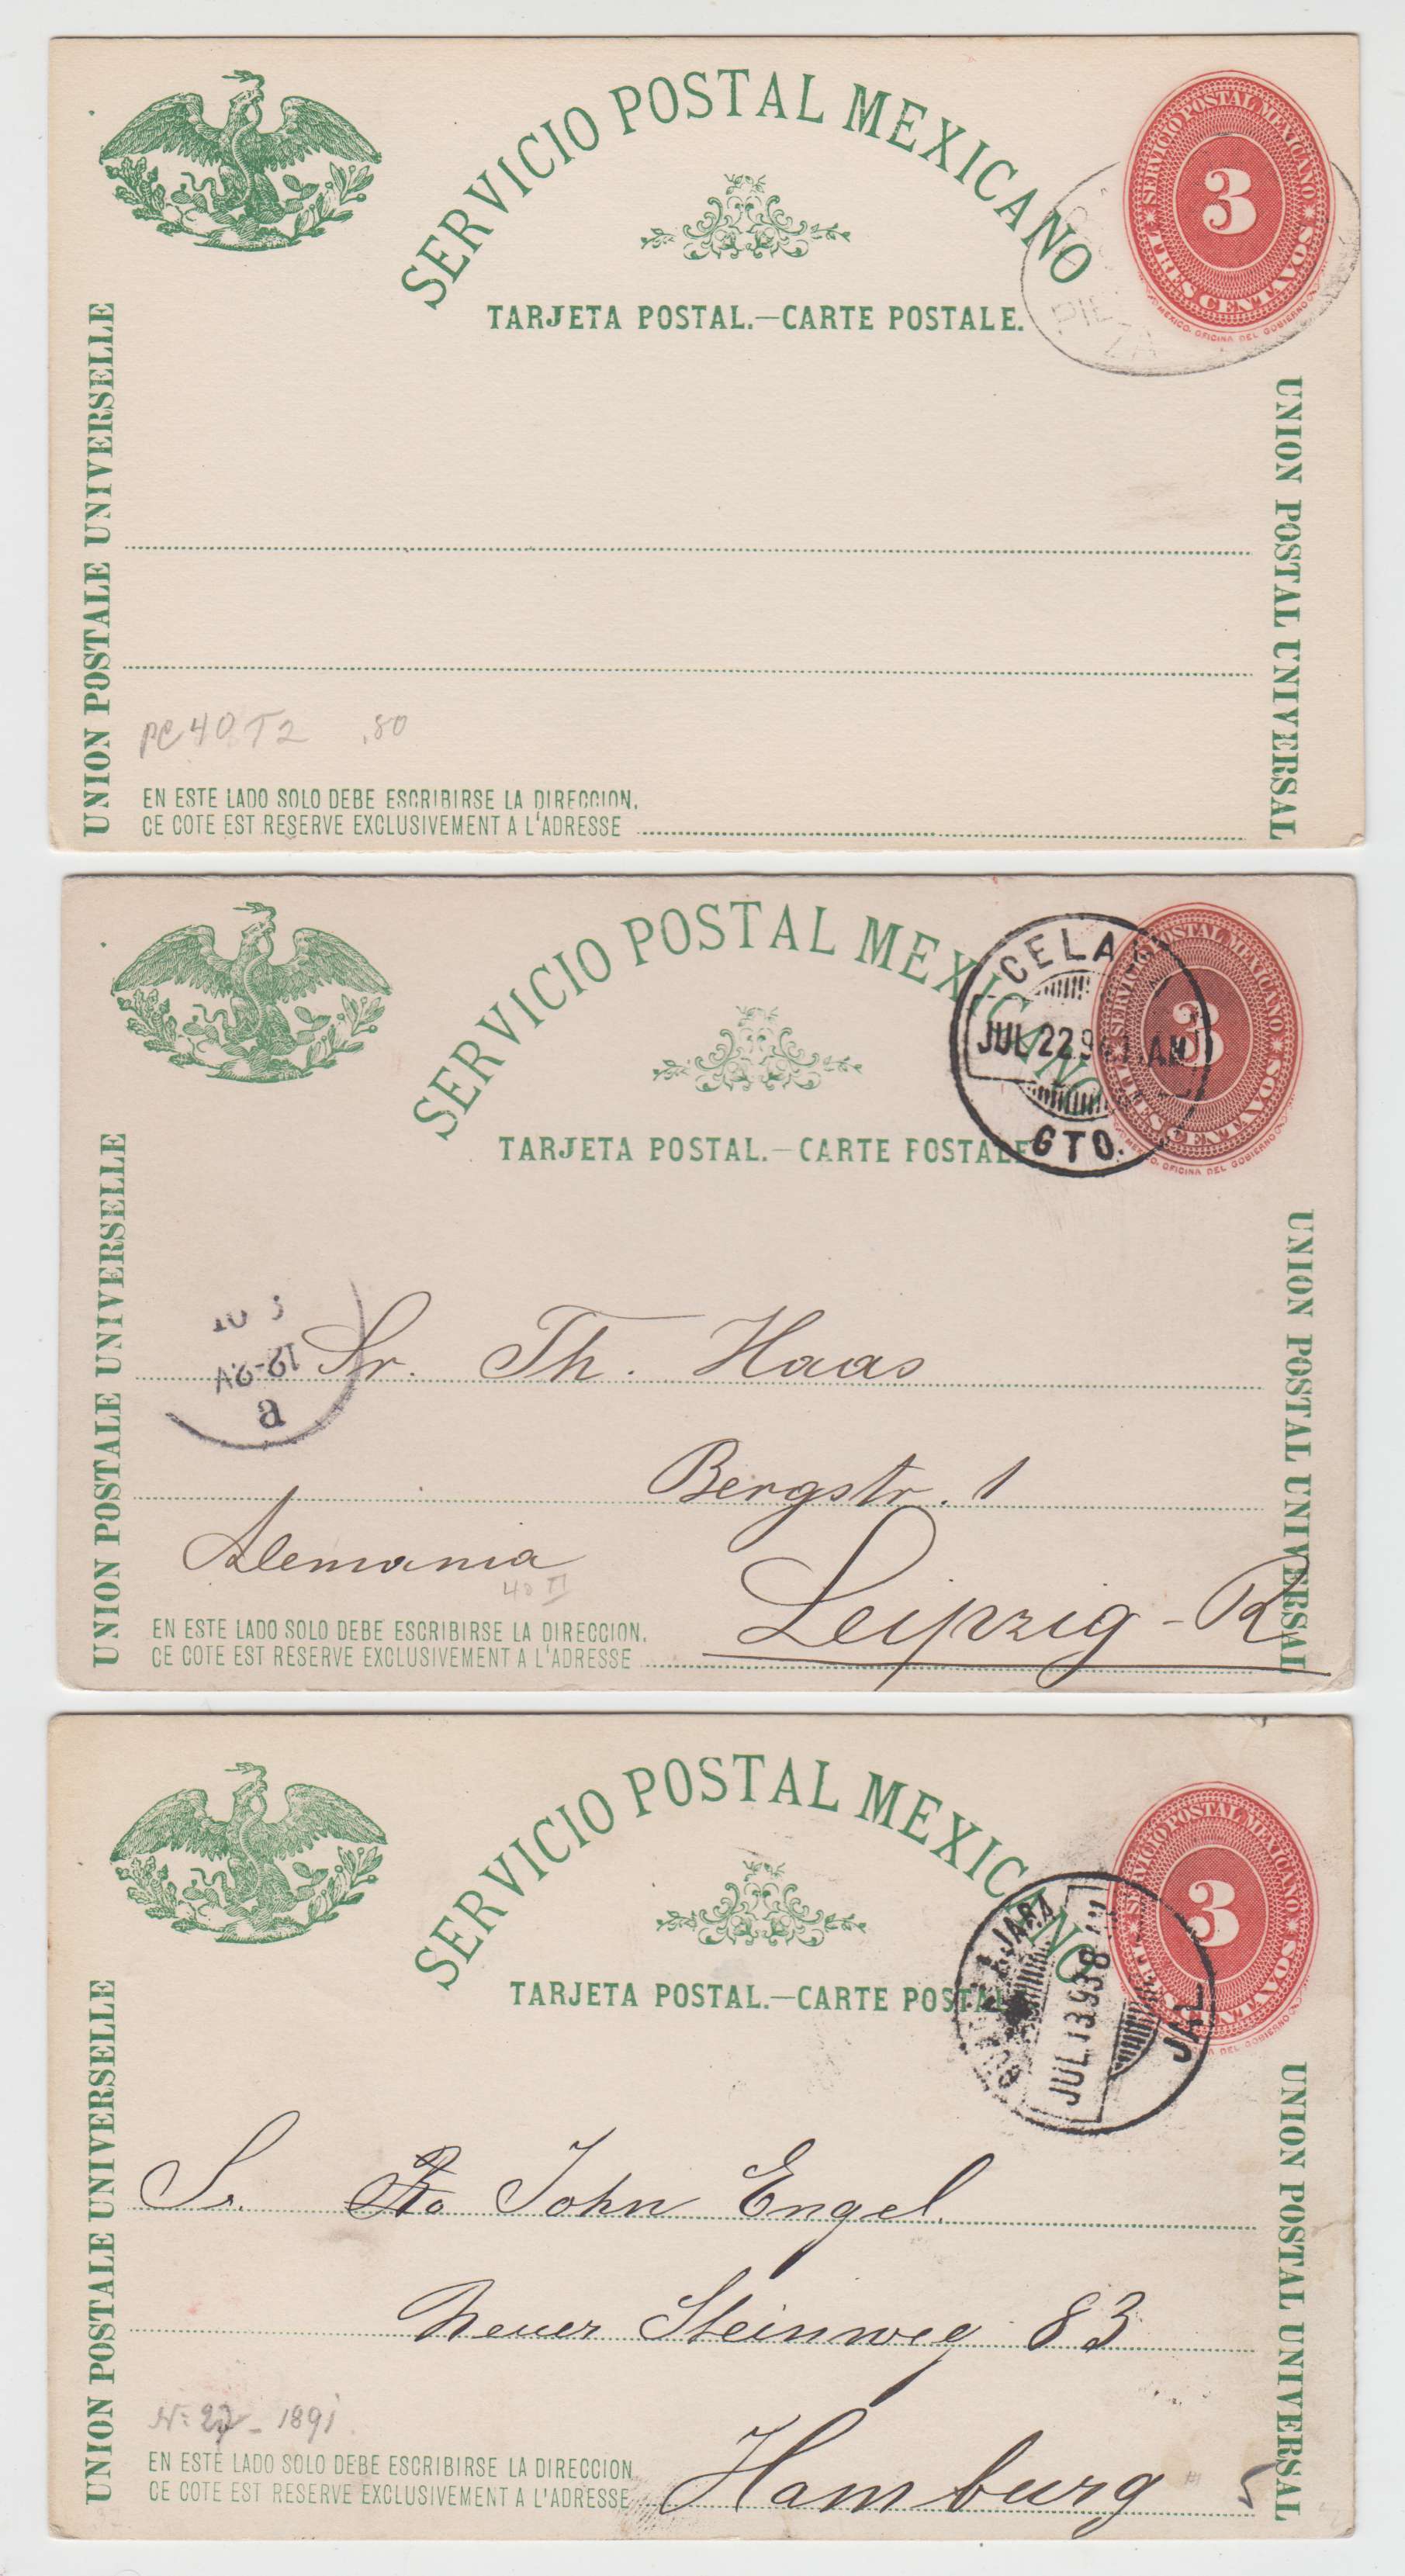 SERVICIO POSTAL MEXICANO
SERVICIO POSTAL MEXICANO
3
TRES CENTAVOS
MEXICO. OFICINA DEL GOBIERNO
TARJETA POSTAL.—CARTE POSTALE.
UNION POSTALE UNIVERSELLE
UNION POSTAL UNIVERSAL
PC 40 T2 .80
EN ESTE LADO SOLO DEBE ESCRIBIRSE LA DIRECCION.
CE COTE EST RESERVE EXCLUSIVEMENT A L'ADRESSE
SERVICIO POSTAL MEXICANO
SERVICIO POSTAL MEXICANO
3
TRES CENTAVOS
MEXICO. OFICINA DEL GOBIERNO
CELAY
JUL 22 9 AM
GTO.
TARJETA POSTAL.—CARTE POSTALE
UNION POSTALE UNIVERSELLE
UNION POSTAL UNIVERSAL
12-2.V
a
Sr. Th. Haas
Bergstr. 1
Alemania
40 II
Leipzig - R
EN ESTE LADO SOLO DEBE ESCRIBIRSE LA DIRECCION.
CE COTE EST RESERVE EXCLUSIVEMENT A L'ADRESSE
SERVICIO POSTAL MEXICANO
SERVICIO POSTAL MEXICANO
3
TRES CENTAVOS
DEL GOBIERNO
JUL 13.93 8 AM
JAL
TARJETA POSTAL.—CARTE POSTAL
UNION POSTALE UNIVERSELLE
UNION POSTAL UNIVERSAL
Sr. John Engel
Neuer Steinweg 83
1891
Hamburg
EN ESTE LADO SOLO DEBE ESCRIBIRSE LA DIRECCION
CE COTE EST RESERVE EXCLUSIVEMENT A L'ADRESSE